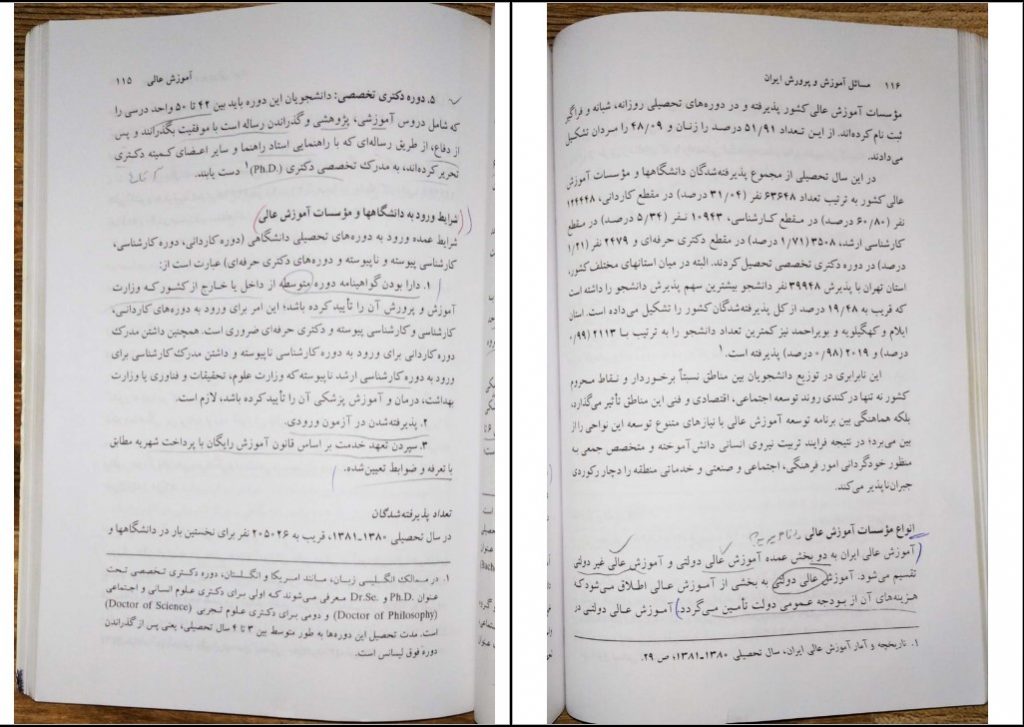 آموزش عالی ۱۱۵
۵. دوره دکتری تخصصی: دانشجویان این دوره باید بین ۴۲ تا ۵۰ واحد درسی را
که شامل دروس آموزشی، پژوهشی و گذراندن رساله است با موفقیت بگذرانند و پس
از دفاع، از طریق رساله‌ای که با راهنمایی استاد راهنما و سایر اعضای کمیته دکتری
تحریر کرده‌اند، به مدرک تخصصی دکتری (Ph.D.)۱ دست یابند.
شرایط ورود به دانشگاهها و مؤسسات آموزش عالی
شرایط عمده ورود به دوره‌های تحصیلی دانشگاهی (دوره کاردانی، دوره کارشناسی،
کارشناسی پیوسته و ناپیوسته و دوره‌های دکتری حرفه‌ای) عبارت است از:
۱. دارا بودن گواهینامه دوره متوسطه از داخل یا خارج از کشور که وزارت
آموزش و پرورش آن را تأیید کرده باشد؛ این امر برای ورود به دوره‌های کاردانی،
کارشناسی و کارشناسی پیوسته و دکتری حرفه‌ای ضروری است. همچنین داشتن مدرک
دوره کاردانی برای ورود به دوره کارشناسی ناپیوسته و داشتن مدرک کارشناسی برای
ورود به دوره کارشناسی ارشد ناپیوسته که وزارت علوم، تحقیقات و فناوری یا وزارت
بهداشت، درمان و آموزش پزشکی آن را تأیید کرده باشد، لازم است.
۲. پذیرفته‌شدن در آزمون ورودی.
۳. سپردن تعهد خدمت بر اساس قانون آموزش رایگان یا پرداخت شهریه مطابق
با تعرفه و ضوابط تعیین‌شده.
تعداد پذیرفته‌شدگان
در سال تحصیلی ۱۳۸۰ـ۱۳۸۱، قریب به ۲۰۵۰۲۶ نفر برای نخستین بار در دانشگاهها و
۱. در ممالک انگلیسی زبان، مانند امریکا و انگلستان، دوره دکتری تخصصی تحت
عنوان Ph.D و Dr.Sc. معرفی می‌شوند که اولی برای دکتری علوم انسانی و اجتماعی
(Doctor of Philosophy) و دومی برای دکتری علوم تجربی (Doctor of Science)
است. مدت تحصیل این دوره‌ها به طور متوسط بین ۳ تا ۴ سال تحصیلی، یعنی پس از گذراندن
دوره فوق لیسانس است.
۱۱۶ مسائل آموزش و پرورش ایران
مؤسسات آموزش عالی کشور پذیرفته و در دوره‌های تحصیلی روزانه، شبانه و فراگیر
ثبت نام کرده‌اند. از این تعداد ۵۱/۹۱ درصد را زنان و ۴۸/۰۹ را مردان تشکیل
می‌دادند.
در این سال تحصیلی از مجموع پذیرفته‌شدگان دانشگاهها و مؤسسات آموزش
عالی کشور به ترتیب تعداد ۶۳۶۴۸ نفر (۳۱/۰۴ درصد) در مقطع کاردانی، ۱۲۴۴۴۸
نفر (۶۰/۸۰ درصد) در مقطع کارشناسی، ۱۰۹۴۳ نفر (۵/۳۴ درصد) در مقطع
کارشناسی ارشد، ۳۵۰۸ (۱/۷۱ درصد) در مقطع دکتری حرفه‌ای و ۲۴۷۹ نفر (۱/۲۱
درصد) در دوره دکتری تخصصی تحصیل کردند. البته در میان استانهای مختلف کشور،
استان تهران با پذیرش ۳۹۹۴۸ نفر دانشجو بیشترین سهم پذیرش دانشجو را داشته است
که قریب به ۱۹/۴۸ درصد از کل پذیرفته‌شدگان کشور را تشکیل می‌داده است. استان
ایلام و کهگیلویه و بویراحمد نیز کمترین تعداد دانشجو را به ترتیب با ۲۱۱۳ (۰/۹۹
درصد) و ۲۰۱۹ (۰/۹۸ درصد) پذیرفته است.۱
این نابرابری در توزیع دانشجویان بین مناطق نسبتاً برخوردار و نقاط محروم
کشور نه تنها در کندی روند توسعه اجتماعی، اقتصادی و فنی این مناطق تأثیر می‌گذارد،
بلکه هماهنگی بین برنامه توسعه آموزش عالی با نیازهای متنوع توسعه این نواحی را از
بین می‌برد؛ در نتیجه فرایند تربیت نیروی انسانی دانش‌آموخته و متخصص جمعی به
منظور خودگردانی امور فرهنگی، اجتماعی و صنعتی و خدماتی منطقه را دچار رکودی
جبران‌ناپذیر می‌کند.
انواع مؤسسات آموزش عالی
آموزش عالی ایران به دو بخش عمده آموزش عالی دولتی و آموزش عالی غیر دولتی
تقسیم می‌شود. آموزش عالی دولتی به بخشی از آموزش عالی اطلاق می‌شود که
هزینه‌های آن از بودجه عمومی دولت تأمین می‌گردد. آموزش عالی دولتی در
۱. تاریخچه و آمار آموزش عالی ایران، سال تحصیلی ۱۳۸۰ـ۱۳۸۱؛ ص ۲۹.